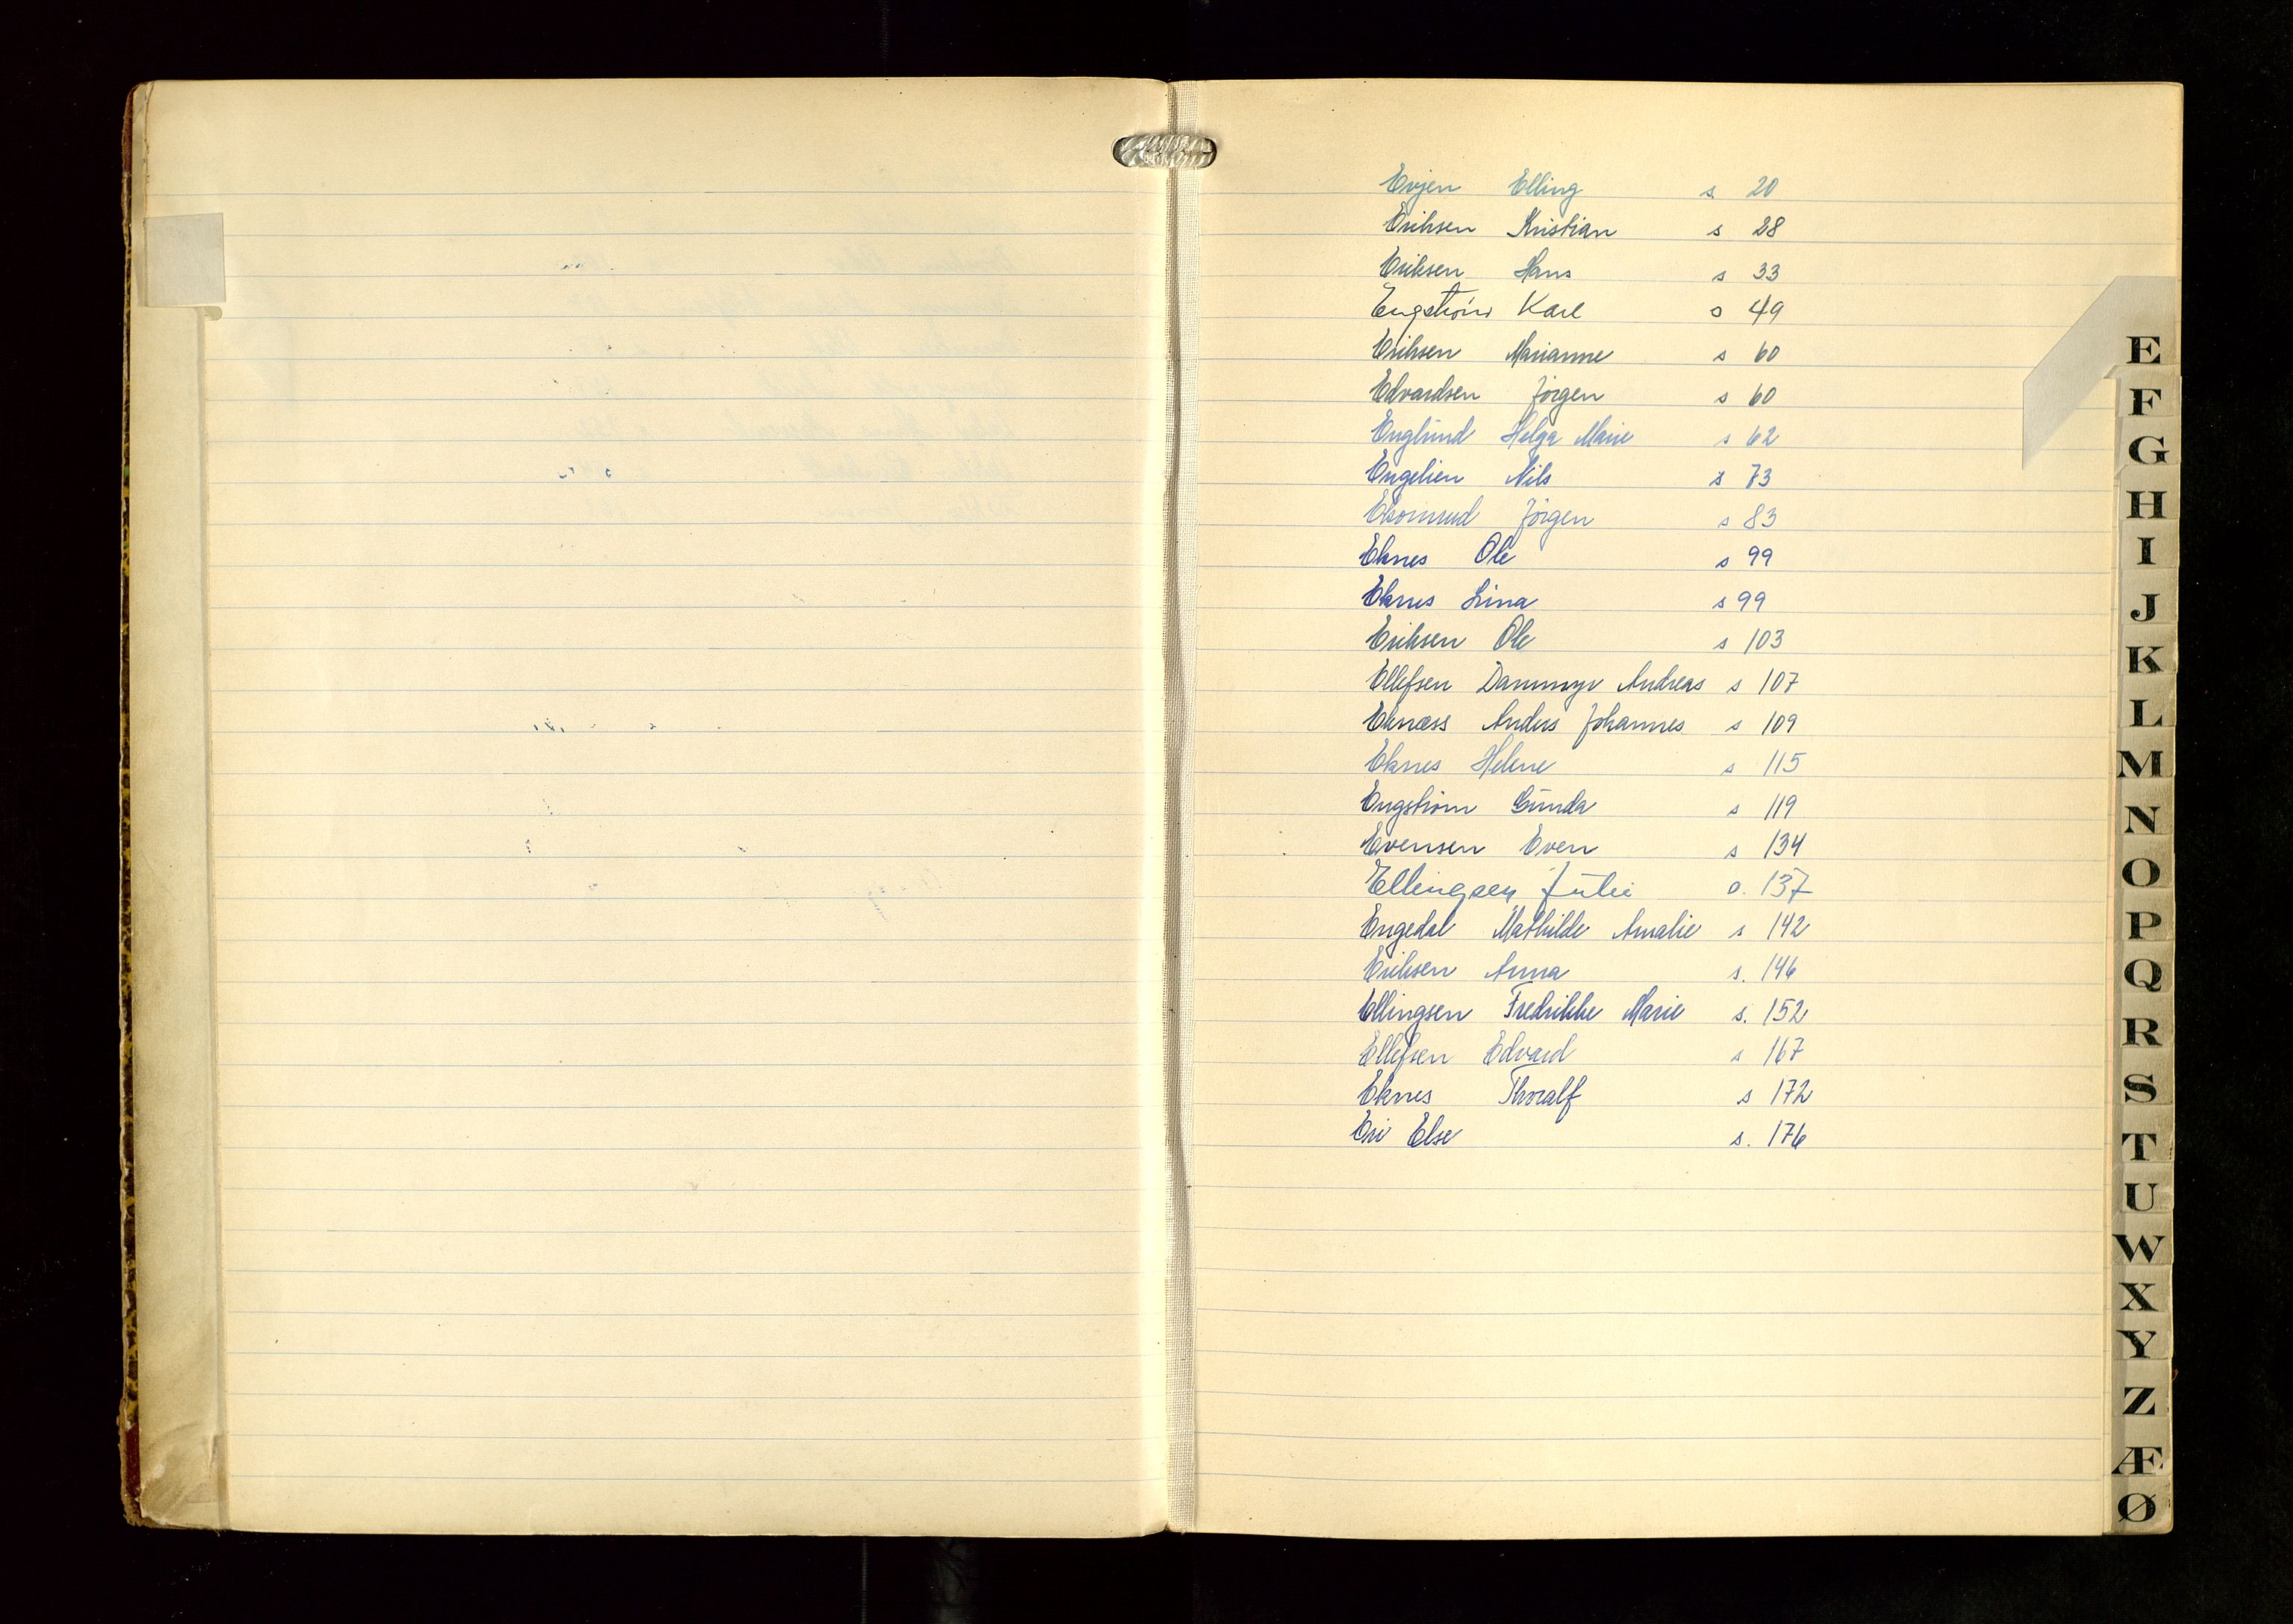 Evjen Elling s. 20
Eriksen Kristian s 28
Eriksen Hans s 33
Engström Karl s 49
Eriksen Marianne s 60
Edvardsen Jörgen s 60
Englund Helga Marie s 62
Engelien Nils s 73
Jörgen s 83
Eknes Ole s 99
Eknes Lina s 99
Eriksen Ole s 103
Ellefsen Dammyr Andreas s 107
Eknæss Anders Johannes s 109
Eknes Helene s 115
Engström Gunda s 119
Evensen Even s 134
Ellingsen Julie s. 137
Engedal Mathilde Amalie s 142
Eriksen Anna s. 146
Ellingsen Fredrikke Marie s. 152
Ellefsen Edvard s 167
Eknes Thoralf s 172
Eri Else s. 176
E
F
G
H
I
J
K
L
M
N
O
P
Q
R
S
T
U
W
X
Y
Z
Æ
Ø